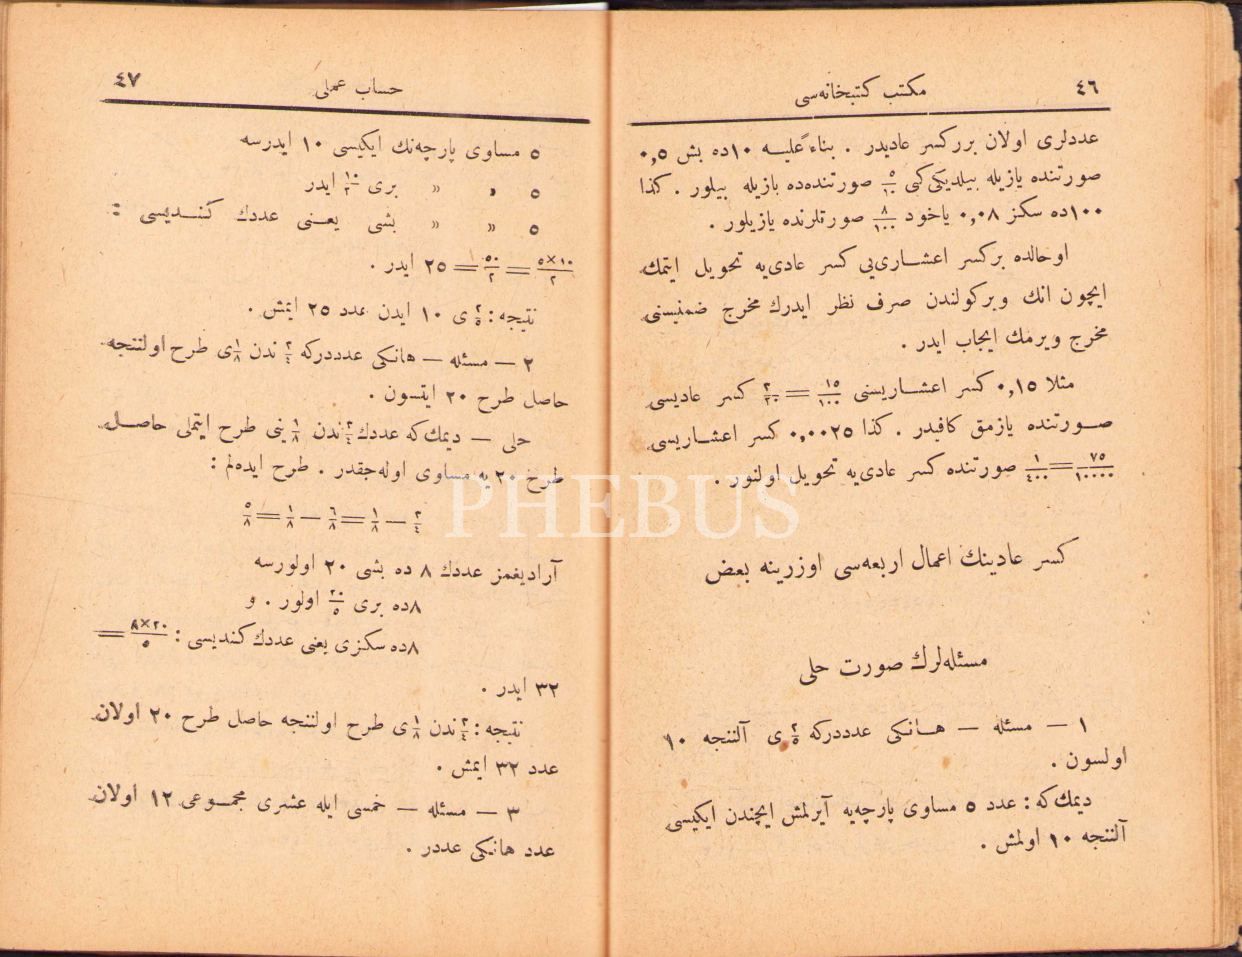 ٤٦
مكتب كتبخانه‌سی
عددلری اولان برر كسر عادیدر . بناءً علیه ١٠ده بش ٠,٥
صورتنده یازیله بیلدیكی كبی ٥/١٠ صورتنده‌ده یازیله بیلور . كذا
١٠٠ده سكز ٠,٠٨ یاخود ٨/١٠٠ صورتلرنده یازیلور .
اوحالده بركسر اعشاری‌یی كسر عادی‌یه تحویل ایتمك
ایچون انك ویركولندن صرف نظر ایدرك مخرج ضمنیسنی
مخرج ویرمك ایجاب ایدر .
مثلا ٠,١٥ كسر اعشاریسنی ١٥/١٠٠ = ٣/٢٠ كسر عادیسی
صورتنده یازمق كافیدر . كذا ٠,٠٠٢٥ كسر اعشاریسی
٧٥/١٠٠٠٠ = ١/٤٠٠ صورتنده كسر عادی‌یه تحویل اولنور .
كسر عادینك اعمال اربعه‌سی اوزرینه بعض
مسئله‌لرك صورت حلی
١ — مسئله — هانكی عدددركه ٢/٥ ی آلننجه ١٠
اولسون .
دیمك كه : عدد ٥ مساوی پارچه‌یه آیرلمش ایچندن ایكیسی
آلننجه ١٠ اولمش .
حساب عملی
٤٧
٥ مساوی پارچه‌نك ایكیسی ١٠ ایدرسه
٥ » » بری ١٠/٢ ایدر
٥ » » بشی یعنی عددك كندیسی :
٥×١٠/٢ = ٥٠/٢ = ٢٥ ایدر .
نتیجه : ٢/٥ ی ١٠ ایدن عدد ٢٥ ایمش .
٢ — مسئله — هانكی عدددركه ٣/٤ ندن ١/٨ ی طرح اولننجه
حاصل طرح ٢٠ ایتسون .
حلی — دیمك كه عددك ٣/٤ ندن ١/٨ ینی طرح ایتملی حاصل
طرح ٢٠ یه مساوی اوله‌جقدر . طرح ایده‌لم :
٣/٤ — ١/٨ = ٦/٨ — ١/٨ = ٥/٨
آرادیغمز عددك ٨ ده بشی ٢٠ اولورسه
٨ده بری ٢٠/٥ اولور . و
٨ده سكزی یعنی عددك كندیسی : ٨×٢٠/٥ =
٣٢ ایدر .
نتیجه : ٣/٤ ندن ١/٨ ی طرح اولننجه حاصل طرح ٢٠ اولان
عدد ٣٢ ایمش .
٣ — مسئله — خمسی ایله عشری مجموعی ١٢ اولان
عدد هانكی عددر .
PHEBUS